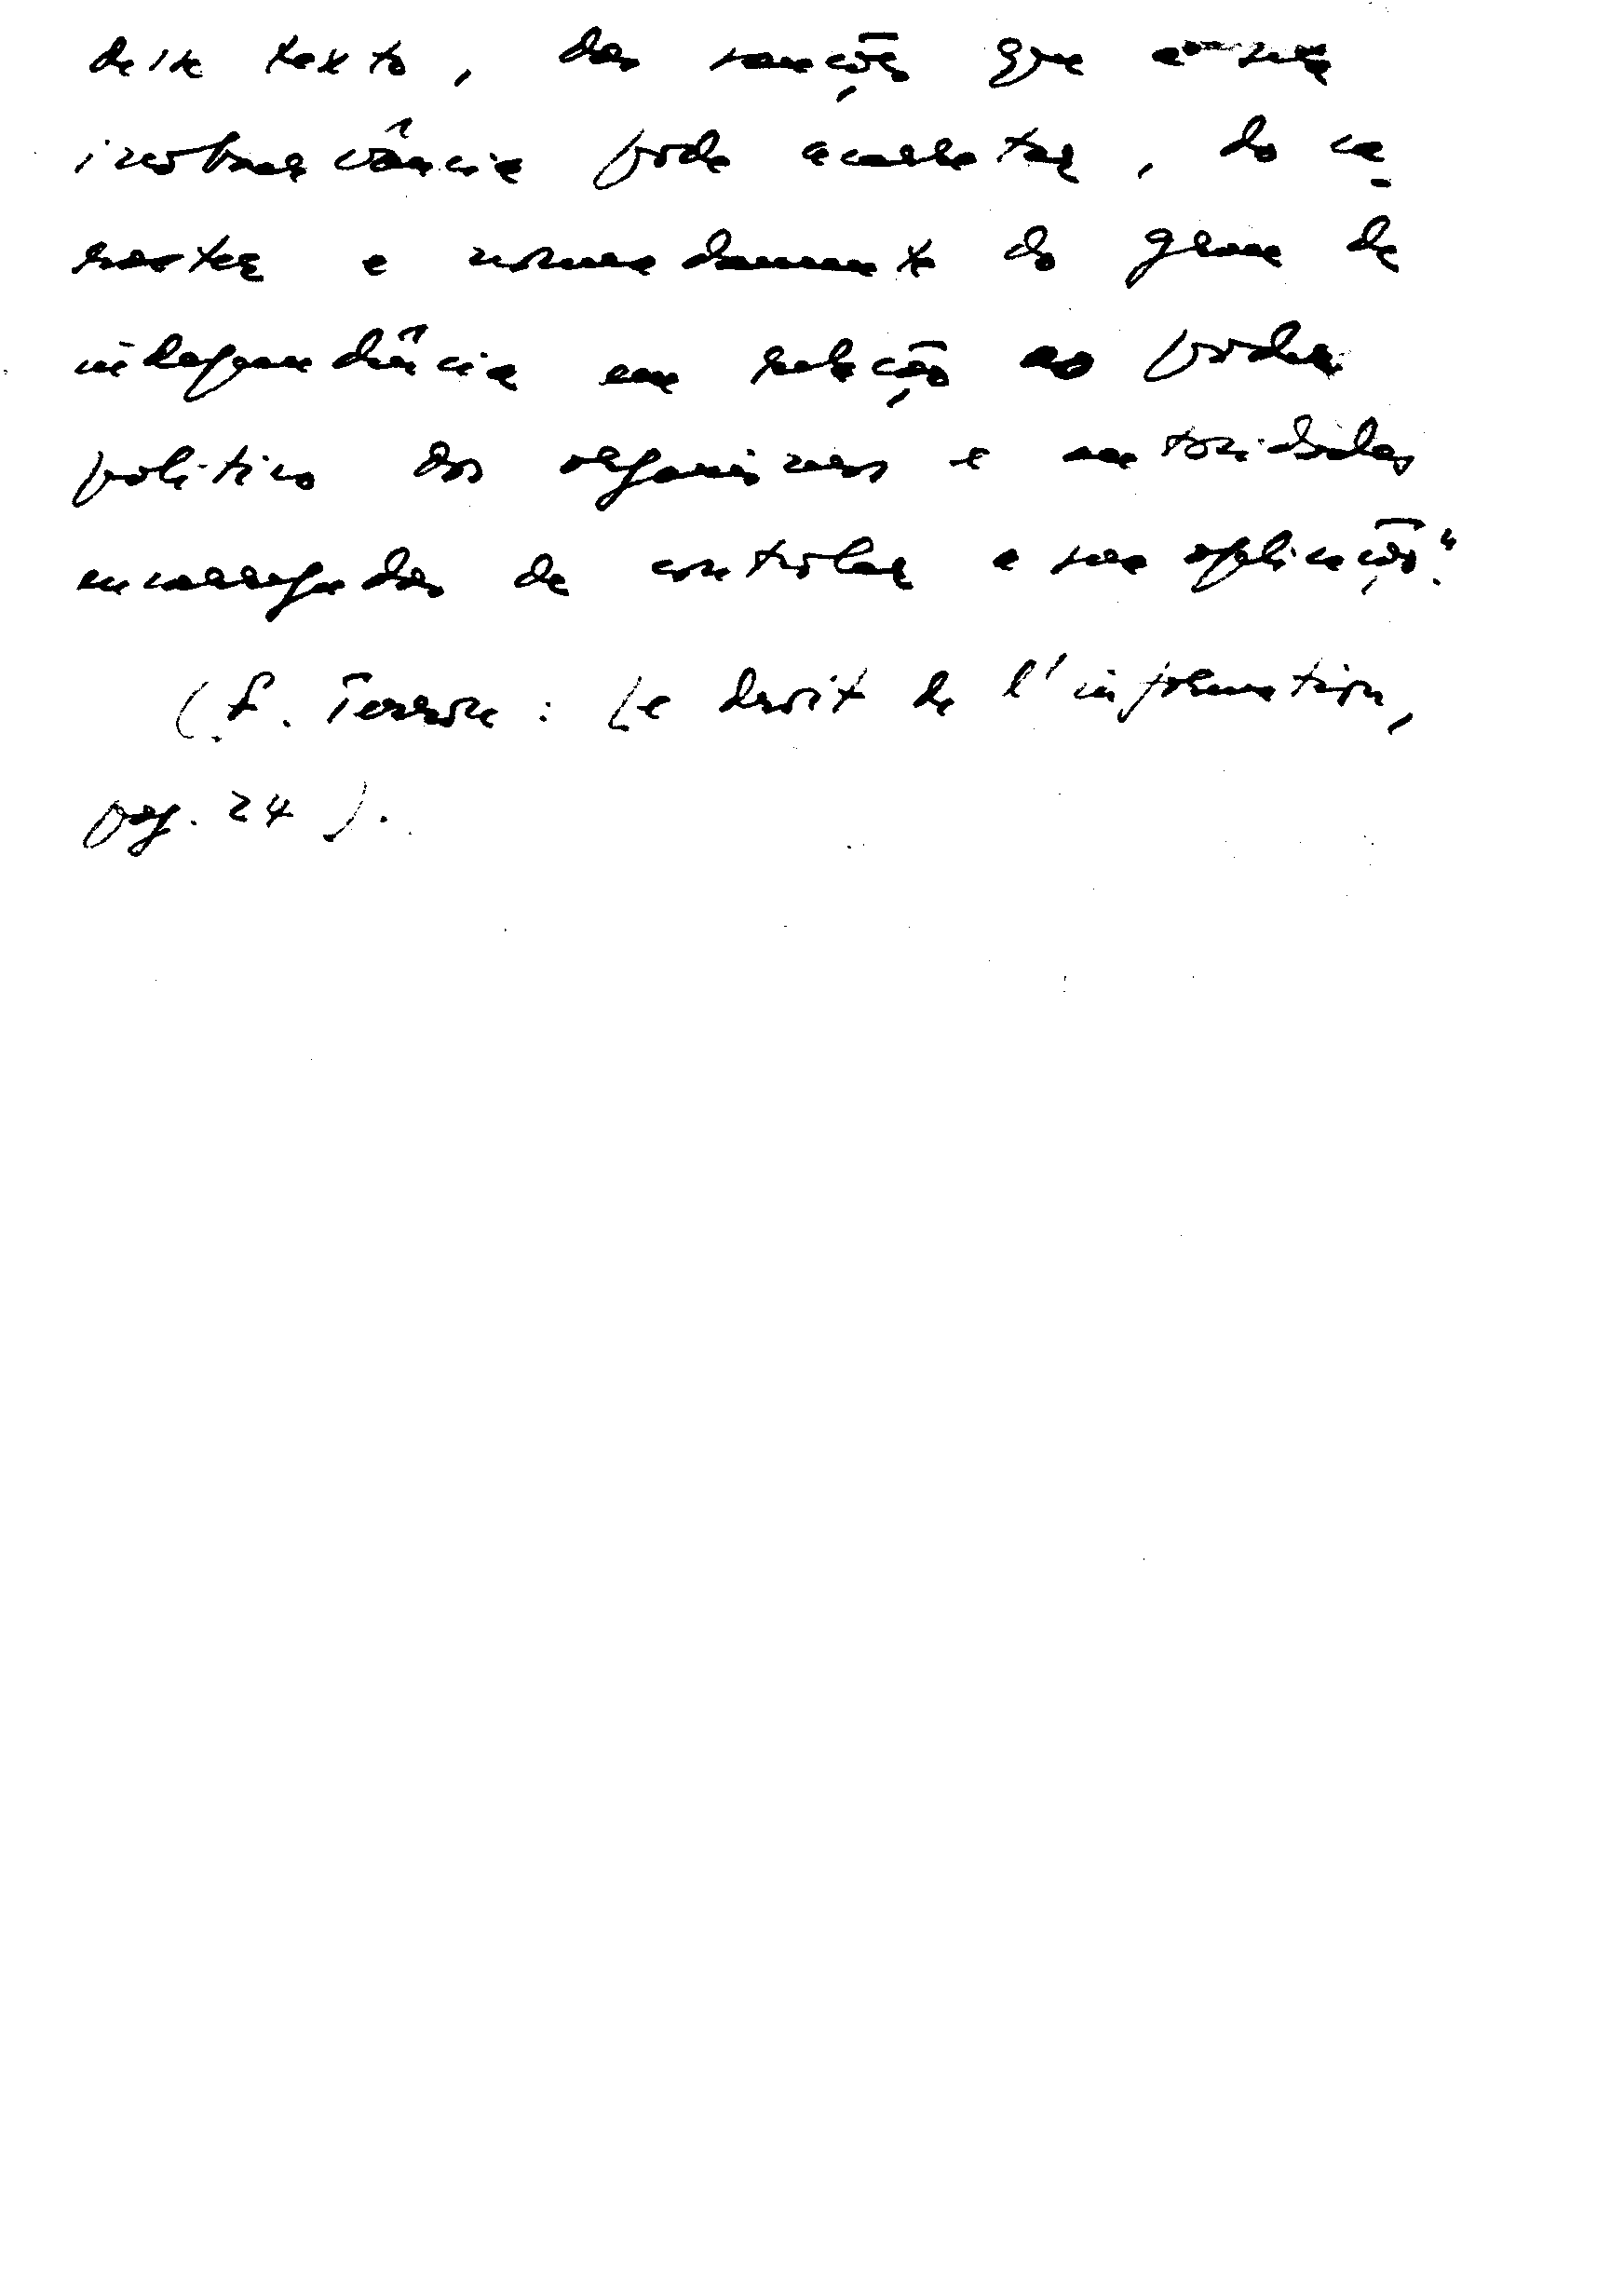 deste texto, das sanções que a sua
inobservância pode acarretar, do ca-
racter e nomeadamente do grau de
independência em relação ao poder
politico dos organismos e autoridades
encarregadas de controlar a sua aplicação".
(F. Terrou: Le droit de l'information,
pag. 24).